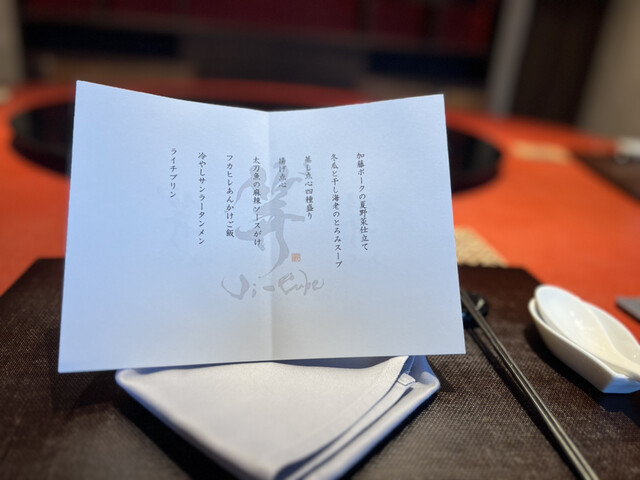 加藤ポークの夏野菜仕立て
冬瓜と干し海老のとろみスープ
蒸し点心四種盛り
揚げ点心
太刀魚の麻辣ソースがけ
フカヒレあんかけご飯
冷やしサンラータンメン
ライチプリン
Ji-Cube